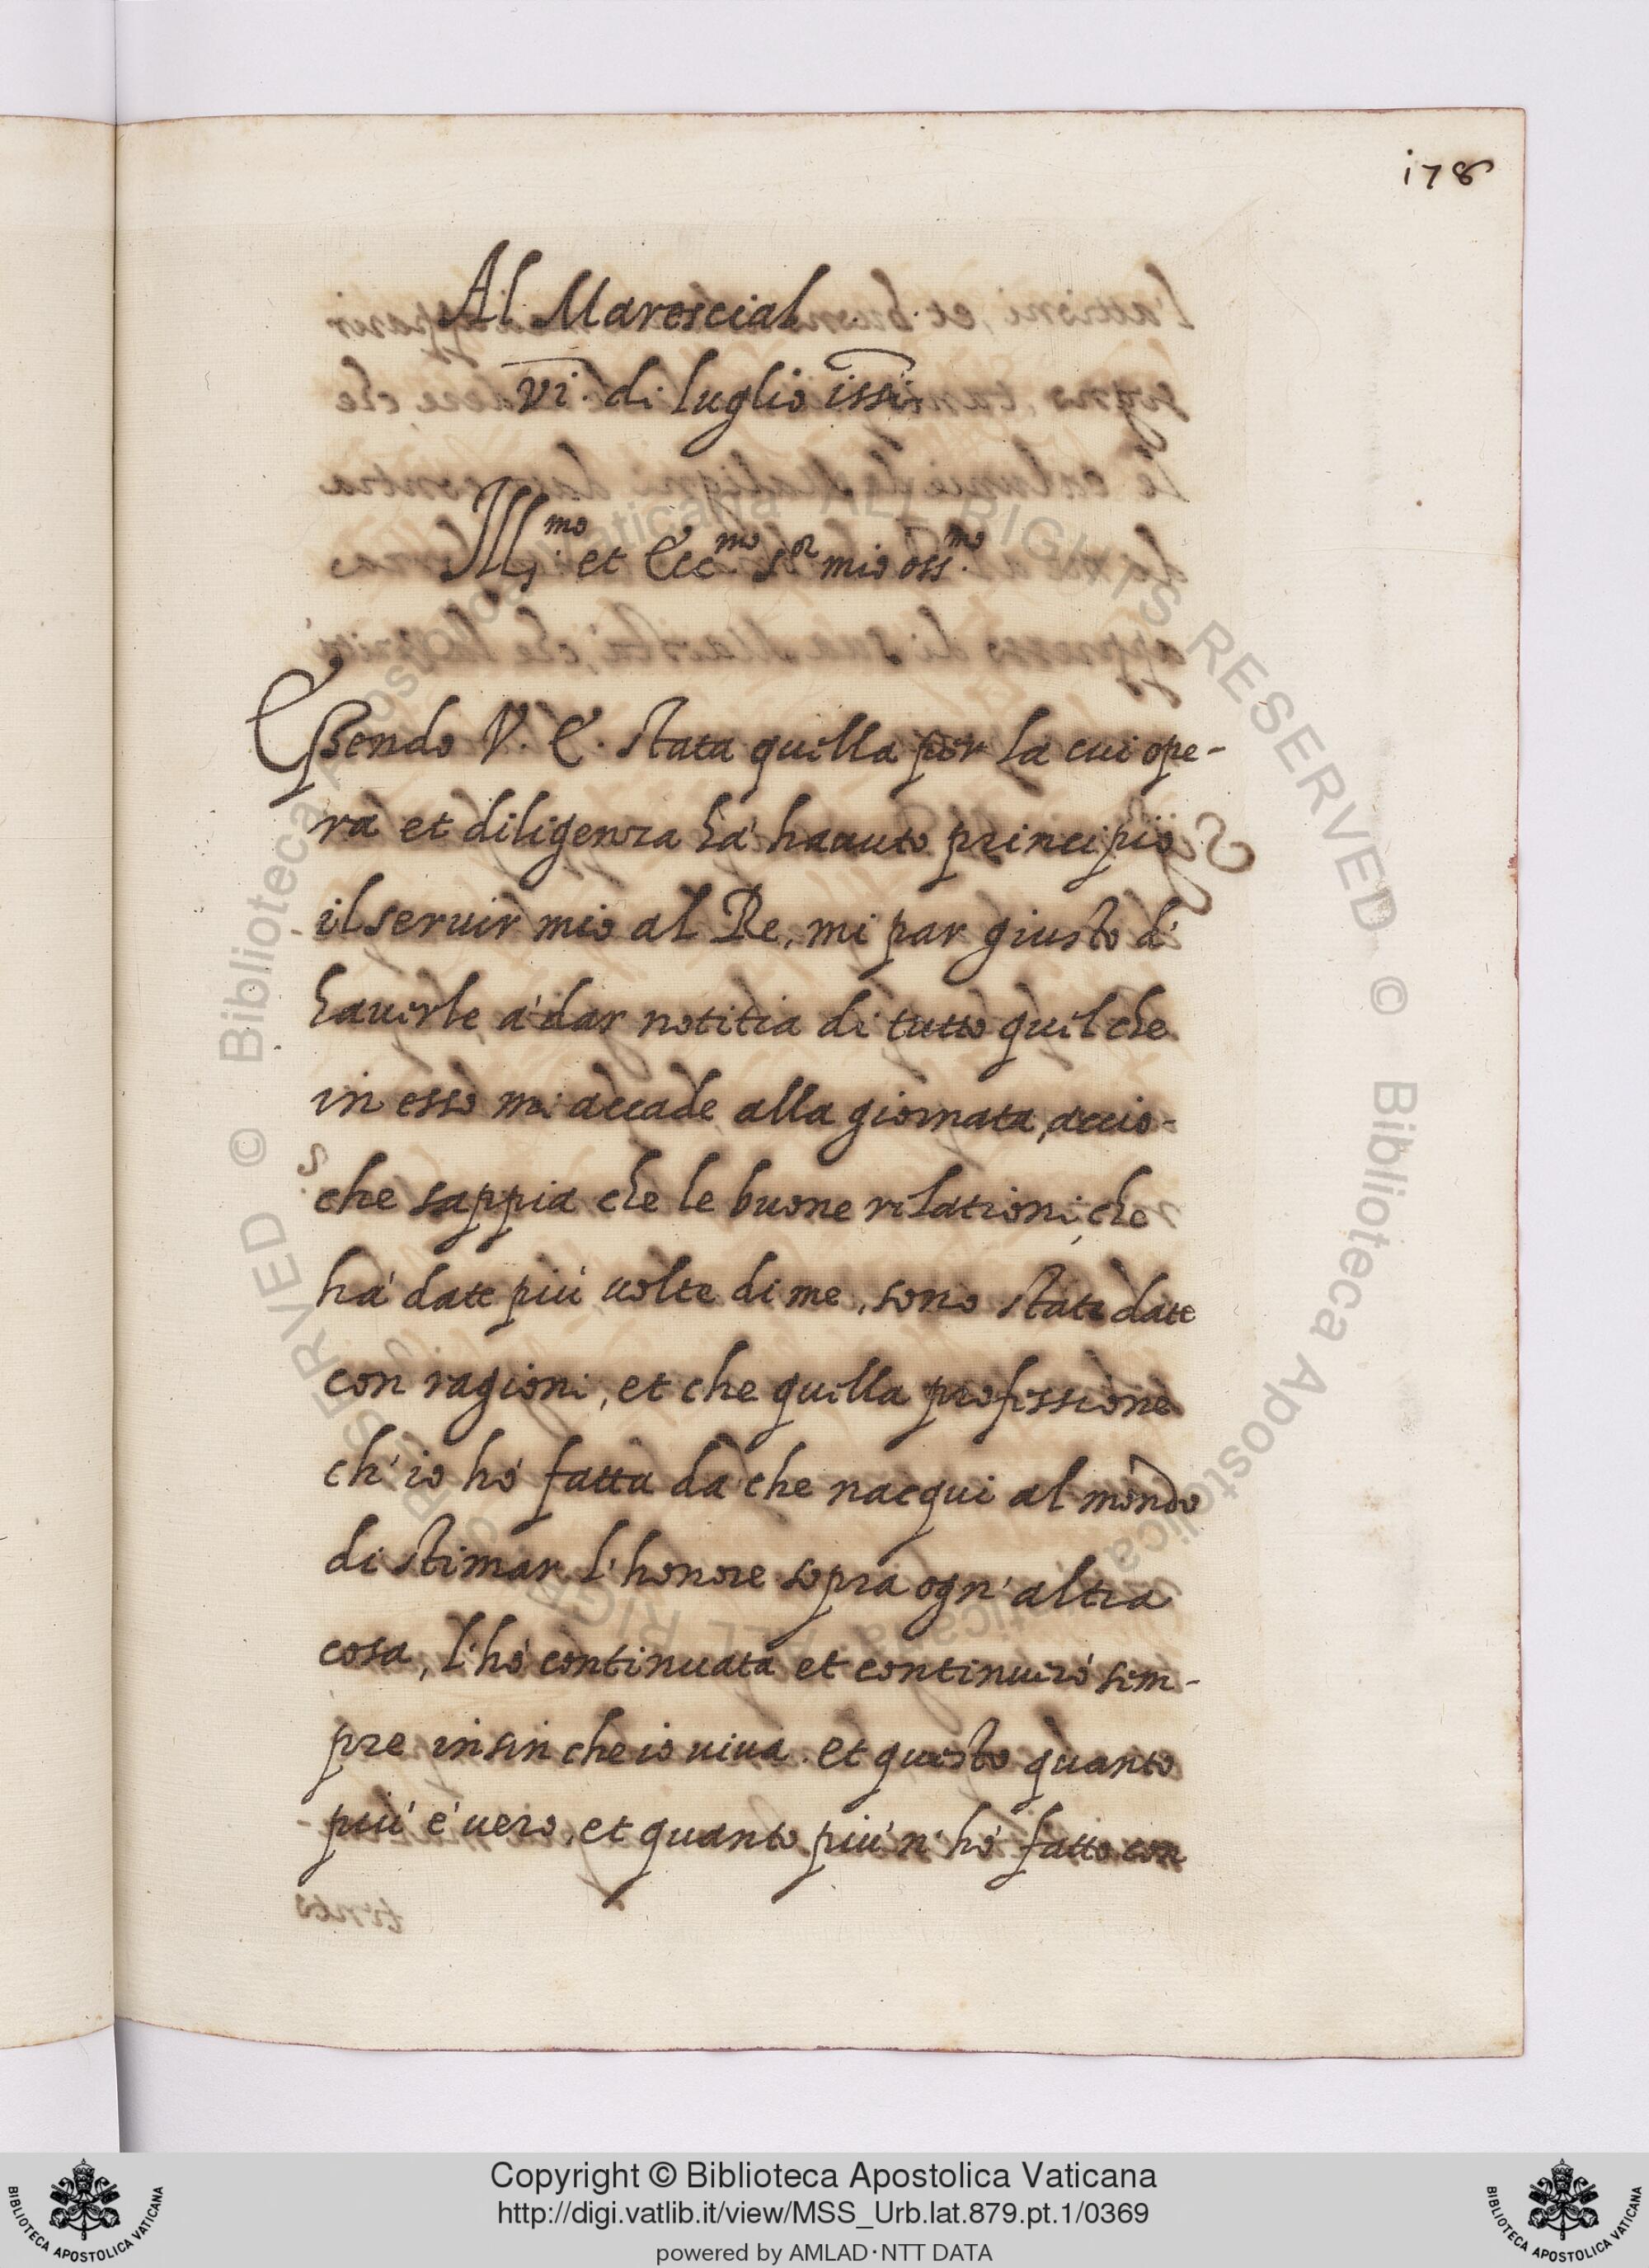 i78
Al Marescial
vi. di luglio i55i
Ill.mo et Ecc.mo s.or mio oss.mo
Essendo V. E. stata quella per la cui ope-
ra et diligenza há hauuto principio
il seruir mio al Re, mi par giusto di
hauerle á dar notitia di tutto quel che
in esso mi accade alla giornata, accio-
che sappia che le buone relationi, che
há date piú uolte di me, sono state date
con ragioni, et che quella professione
ch' io hó fatta da che nacqui al mondo
di stimar l' honore sopra ogn' altra
cosa, l' hó continuata et continueró sem-
pre insin che io uiua. et questo quanto
piú é uero, et quanto piú n' hó fatto con
© Biblioteca Apostolica Vaticana ALL RIGHTS RESERVED © Biblioteca Apostolica Vaticana ALL RIGHTS RESERVED
Copyright © Biblioteca Apostolica Vaticana
http://digi.vatlib.it/view/MSS_Urb.lat.879.pt.1/0369
powered by AMLAD·NTT DATA
BIBLIOTECA APOSTOLICA VATICANA
BIBLIOTECA APOSTOLICA VATICANA